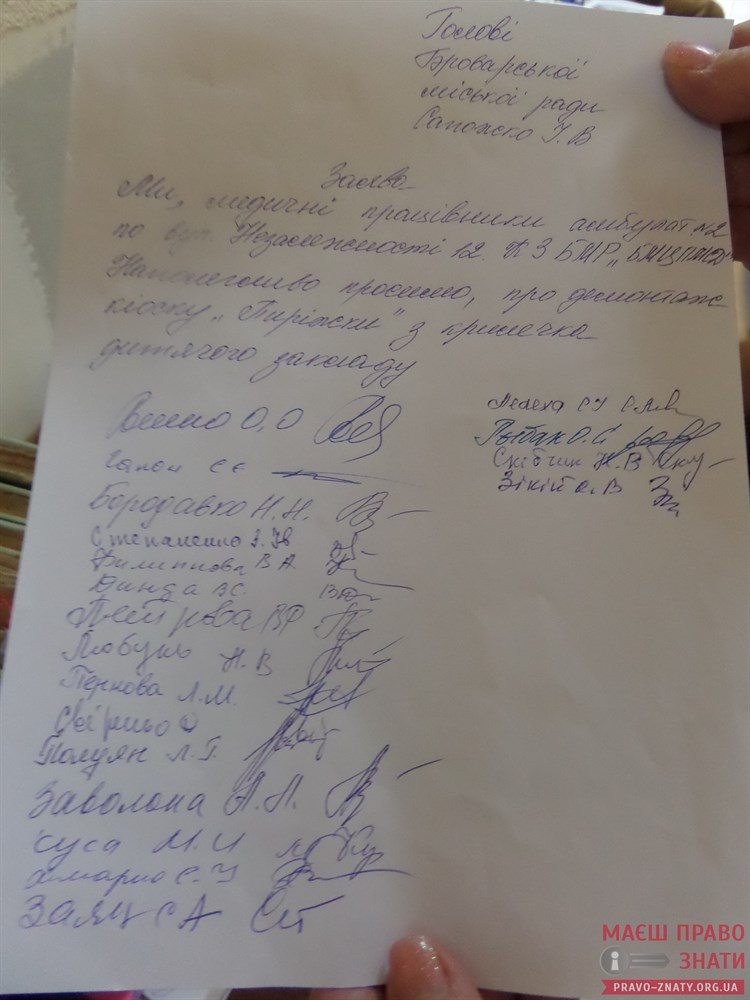 Голові
Броварської
міської ради
Сапожко І.В
Заява
Ми, медичні працівники амбулат №2
по вул. Незалежності 12. КЗ БМР „БМЦПМСД"
Наполегливо просимо, про демонтаж
кіоску „Пиріжки" з крилечка
дитячого закладу
О.О
Гапон Є Є
Бородавко Н.Н.
Степаненко З. Ів
Филиппова В А.
Динда В.С.
Петрова ВФ
Любунь Н.В
Пернова Л.М.
Свірньо О
Полуян Л.Г.
Заволока А.Л.
М.И
С.У
Заяц С А
Лелека С І
Рыбак О.С
Скібчик Н.В
Зікій О.В
МАЄШ ПРАВО
ЗНАТИ
PRAVO-ZNATY.ORG.UA